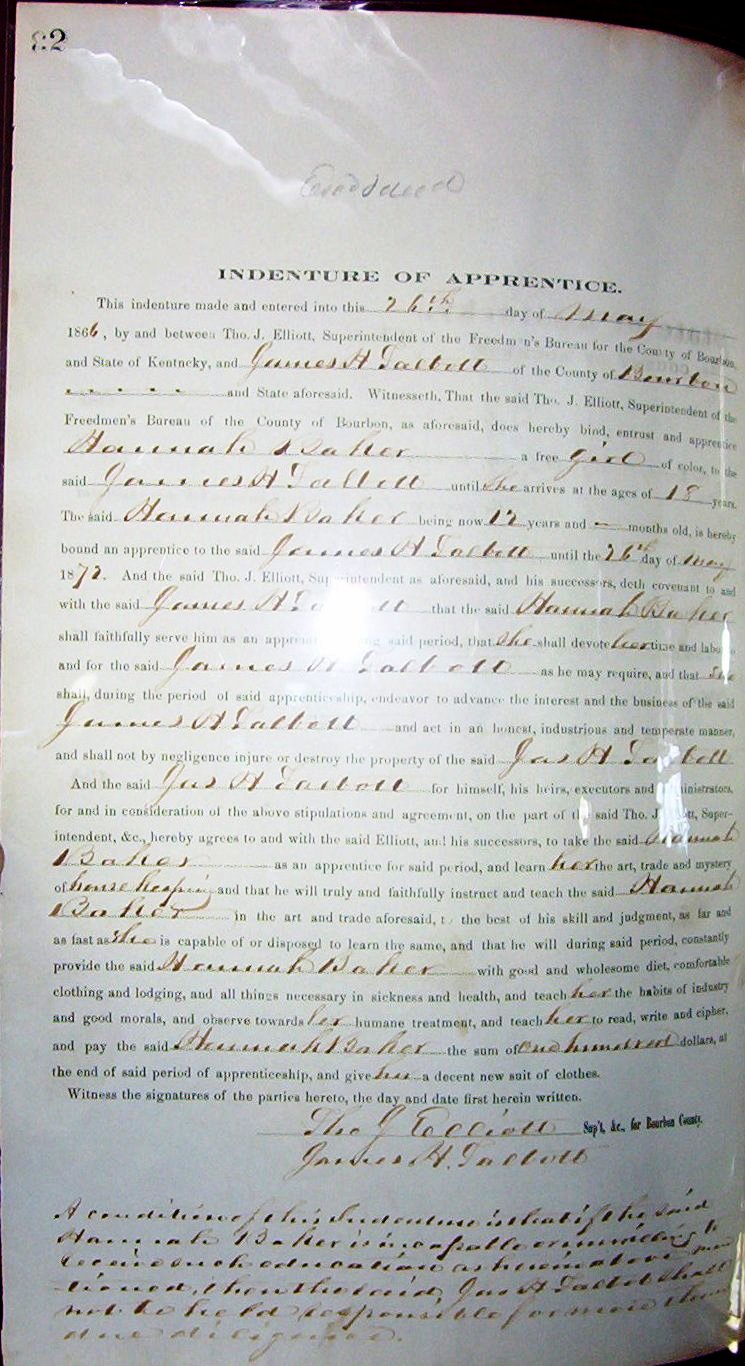 82
INDENTURE OF APPRENTICE.
This indenture made and entered into this 26th day of May
1866, by and between Tho. J. Elliott, Superintendent of the Freedmen's Bureau for the County of Bourbon,
and State of Kentucky, and James H Talbott of the County of Bourbon
and State aforesaid. Witnesseth, That the said Tho. J. Elliott, Superintendent of the
Freedmen's Bureau of the County of Bourbon, as aforesaid, does hereby bind, entrust and apprentice
Hannah Baker a free girl of color, to the
said James H Talbott until she arrives at the ages of 18 years.
The said Hannah Baker being now 12 years and — months old, is hereby
bound an apprentice to the said James H Talbott until the 26th day of May
1872. And the said Tho. J. Elliott, Superintendent as aforesaid, and his successors, doth covenant to and
with the said James H Talbott that the said Hannah Baker
shall faithfully serve him as an apprentice during said period, that she shall devote her time and labor to
and for the said James H Talbott as he may require, and that she
shall, during the period of said apprenticeship, endeavor to advance the interest and the business of the said
James H Talbott and act in an honest, industrious and temperate manner,
and shall not by negligence injure or destroy the property of the said Jas H Talbott
And the said Jas H Talbott for himself, his heirs, executors and administrators,
for and in consideration of the above stipulations and agreement, on the part of the said Tho. J. Elliott, Super-
intendent, &c., hereby agrees to and with the said Elliott, and his successors, to take the said Hannah
Baker as an apprentice for said period, and learn her the art, trade and mystery
of housekeeping and that he will truly and faithfully instruct and teach the said Hannah
Baker in the art and trade aforesaid, to the best of his skill and judgment, as far and
as fast as she is capable of or disposed to learn the same, and that he will during said period, constantly
provide the said Hannah Baker with good and wholesome diet, comfortable
clothing and lodging, and all things necessary in sickness and health, and teach her the habits of industry
and good morals, and observe towards her humane treatment, and teach her to read, write and cipher,
and pay the said Hannah Baker the sum of one hundred dollars, at
the end of said period of apprenticeship, and give her a decent new suit of clothes.
Witness the signatures of the parties hereto, the day and date first herein written.
Tho J Elliott Sup't, &c., for Bourbon County.
James H. Talbott
A condition of this Indenture is that if the said
Hannah Baker is incapable or unwilling to
receive such education as herein above men
tioned, then the said Jas H Talbott shall
not be held responsible for more than
due diligence.